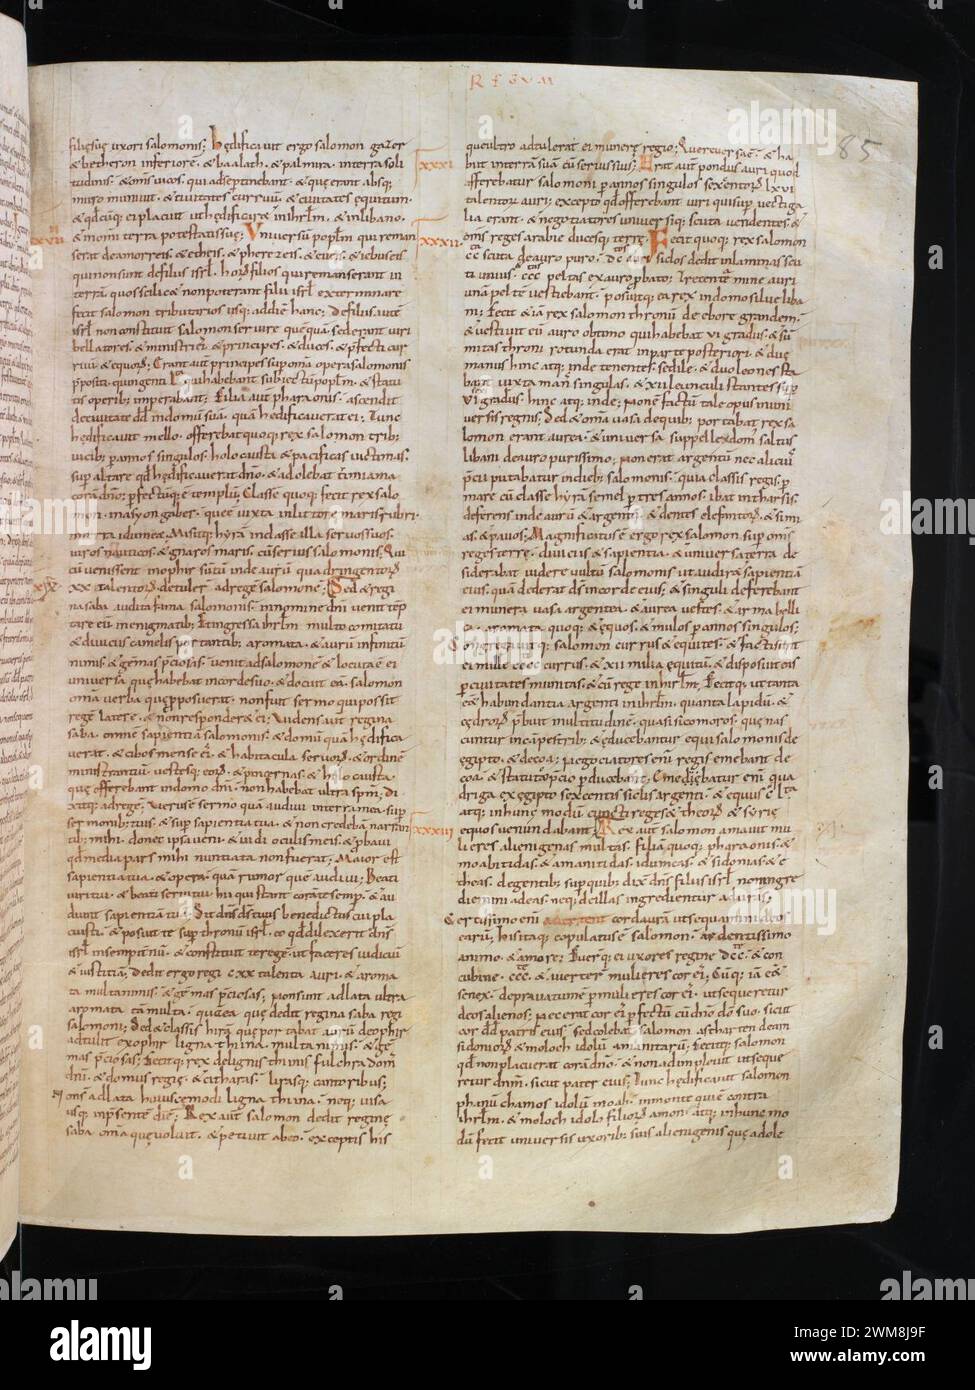 REGVM
85
filię suę uxori salomonis; hędificauit ergo salomon gazer
& betheron inferiorē. & baalath. & palmira. in terra soli
tudinis. & om̄s uicos. qui ad se ptinebant. & quę erant absq;
muro muniuit. & ciuitates curruū. & ciuitates equitum.
& qđcūq; ei placuit ut hędificar& in ihrlm̄. & in libano.
& in om̄i terra potestatis suę; Vniuersū popl̄m qui reman
XXXI
XXXII
XXXIII
XXVIII
XXIX
serat de amorreis & etheis. & pherezeis. & eueis. & iebuseis
qui non sunt de filiis isrl̄. horū filios qui remanserant in
terrā. quos scilic& non poterant filii isrl̄ exterminare
fecit salomon tributarios usq; addiē hanc; De filiis aut̄
isrl̄ non constituit salomon seruire quēquā. sed erant uiri
bellatores. & ministri ei. & principes. & duces. & p̄fecti cur
ruū & equorū; Erant aut̄ principes sup om̄a opera salomonis
p̄positi. quingenti l. qui habebant subiectū popl̄m. & statu
tis operib; imperabant; Filia aut̄ pharaonis. ascendit
de ciuitate dd̄ in domū suā. quā hędificauerat ei; Tunc
hędificauit mello. offerebat quoq; rex salomon trib;
uicib; p annos singulos. holocausta & pacificas uictimas.
sup altare qđ hędificauerat dn̄o. & adolebat timiama
corā dn̄o; pfectūq; ē templū; Classe quoq; fecit rex salo
mon. in asyongaber. quę ē iuxta in litore maris rubri.
in terra idumea; Misitq; hyrā in classe illa seruos suos.
uiros nauticos. & gnaros maris. cū seruis salomonis; Qui
cū uenissent in ophir sūtū inde aurū quadringentorū
XX talentorū. detuler̄ ad regē salomonē; Sed & regi
na saba. audita fama salomonis. in nomine dn̄i. uenit tēp
tare eū in enigmatib; Et ingressa ihrlm̄ multo comitatu
& diuiciis. camelis portantib; aromata. & aurū infinitū
nimis. & gēmas p̄ciosas; uenit ad salomonē & locuta ē ei
uniuersa quę habebat in corde suo. & docuit eā salomon
om̄a uerba quę pposuerat. non fuit sermo qui possit
regē latere. & non responder& ei; Videns aut̄ regina
saba. omnē sapientiā salomonis. & domū quā hędifica
uerat. & cibos mensę ei. & habitacula seruorū. & ordinē
ministrantiū. uestesq; eorū. & pincernas. & holocausta.
quę offerebant in domo dn̄i. non habebat ultra spm̄; Di
xitq; ad regē; Verus ē sermo quē audiui in terra mea. sup
sermonib; tuis. & sup sapientia tua. & non credebā narranti
tib; mihi. donec ipsa ueni. & uidi oculis meis. & pbaui
qđ media pars mihi nuntiata non fuerat; Maior est
sapientia tua & opera. quā rumor quē audiui; Beati
uiri tui. & beati serui tui. hii qui stant corā te semp. & au
diunt sapientiā tuā; Sit dn̄s ds̄ tuus benedictus. cui pla
cuisti. & posuit te sup thronū isrl̄. eo qđ dilexerit dn̄s
isrl̄ in sempitnū. & constituit te regē. ut faceres iudiciū
& iustitiā; Dedit ergo regi CXX talenta auri. & aroma
ta multa nimis. & gēmas p̄ciosas; non sunt adlata ultra
aromata tā multa. quā ea quę dedit regina saba regi
salomoni; Sed & classis hirā. quę portabat aurū de ophir
adtulit ex ophir ligna thina. multa nimis. & gē
mas p̄ciosas; Fecitq; rex de lignis thinis fulchra dom̄
dn̄i. & domus regię. & citharas. lirasq; cantorib;
N̄ons adlata huiuscemodi ligna thina. neq; uisa
usq; in p̄sentē diē; Rex aut̄ salomon dedit reginę
saba. om̄a quę uoluit. & petiuit ab eo. exceptis his
quę ultro adtulerat ei munere regio; Quę reuersa ē. & ha
biit in terrā suā cū seruis suis; Erat aut̄ pondus auri quod
offerebatur salomoni p annos singulos. sexcentorū LXVI
talentorū auri; excepto qđ offerebant uiri qui sup uectiga
lia erant. & negotiatores. uniuersiq; scuta uendentes. &
om̄s reges arabię ducesq; terrę; Fecit quoq; rex salomon
CC scuta de auro puro. DC auri siclos dedit in laminas scu
ti unius. CCC peltas ex auro pbato; Trecentę minę auri
unā peltē uestiebant. posuitq; ea rex in domo siluę liba
ni; Fecit & iā rex salomon thronū de ebore grandem.
& uestiuit eū auro obtimo qui habebat VI gradus. & sū
mitas throni rotunda erat in parte posteriori. & duę
manus hinc atq; inde tenentes. sedile. & duo leones sta
bant iuxta manꝰ singulas. & XII leunculi stantes sup
VI gradus. hinc atq; inde; non ē factū tale opus in uni
uersis regnis; Sed & om̄a uasa de quib; portabat rex sa
lomon erant aurea. & uniuersa suppellex domꝰ saltus
libani de auro purissimo; non erat argentū nec alicuiꝰ
p̄cii putabatur in dieb; salomonis. quia classis regis p
mare cū classe hyrā semel p tres annos. ibat in tharsis.
deferens inde aurū & argentū. & dentes elefantorū. & simi
as. & pauos; Magnificatus ē ergo rex salomon sup om̄s
reges terrę. diuiciis & sapientia. & uniuersa terra de
siderabat uidere uultū salomonis. ut audirā sapientiā
eius. quā dederat ds̄ in corde eius; & singuli deferebant
ei munera uasa argentea. & aurea. uestes. & arma belli
ca. aromata quoq; & ęquos. & mulos p annos singulos;
Congregauitq; salomon currus & equites. & facti sunt
ei mille CCCC currus. & XII milia equitū. & disposuit eos
p ciuitates munitas. & cū rege in ihrlm̄; Fecitq; ut tanta
eēt habundantia argenti in ihrlm̄. quanta lapidū. &
cędrorū p̄buit multitudinē. quasi sicomoros. quę nas
cuntur in cāpestrib; & educebantur equi salomonis de
egipto. & de coa; negotiatores enī regis emebant de
coa. & statuto p̄cio pducebant; Egrediebatur enī qua
driga ex egipto. sexcentis siclis argenti. & equus CL ta
atq; in hunc modū cuncti reges & theorū & syrię
equos uenundabant; Rex aut̄ salomon amauit mu
lieres alienigenas multas. filiā quoq; pharaonis. &
moabitidas. & amanitidas. idumeas. & sidonias. & e
theas. de gentib; sup quib; dix̄ dn̄s filiis isrl̄. non ingre
diemini ad eas. neq; de illis ingredientur ad uras;
Certissimo enī auertent corda urā ut sequamini deos
earū; his itaq; copulatus ē salomon. ardentissimo
animo. & amore; Fuerq; ei uxores reginę DCC. & con
cubinę CCC. & auerter̄ mulieres cor ei; Cūq; iā eēt
senex. deprauatū ē p mulieres cor ei. ut sequeretur
deos alienos; nec erat cor ei pfectū cū dn̄o dō suo. sicut
cor dd̄ patris eius. sed colebat salomon astharten deam
sidoniorū. & moloch idolū amanitarū; Fecitq; salomon
qđ non placuerat corā dn̄o. & non adimpleuit ut seque
retur dn̄m. sicut pater eius; Tunc hędificauit salomon
phanū chamos idolū moab. in monte qui ē contra
ihrlm̄. & moloch idolo filiorū amon. atq; in hunc mo
dū fecit uniuersis uxorib; suis alienigenis quę adole
alamy
Image ID: 2WM8J9F
www.alamy.com